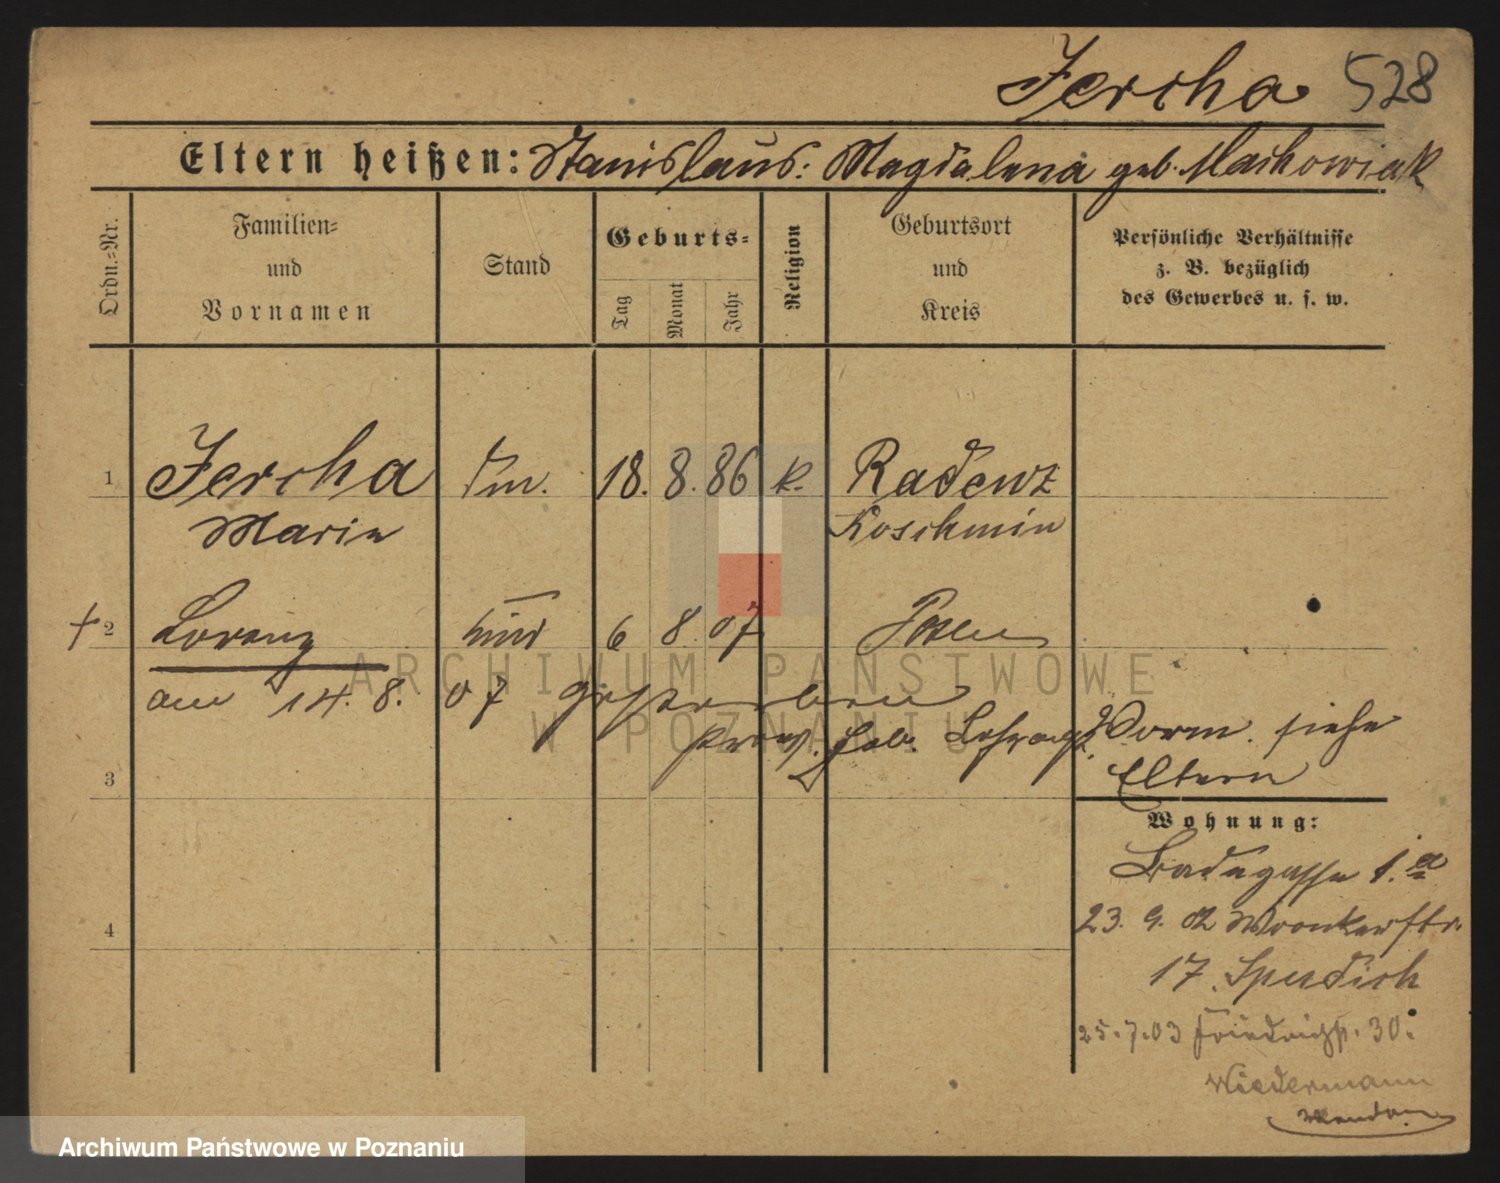 Jercha 528
Eltern heißen: Stanislaus: Magdalena geb. Maikowiak
Ordn.=Nr.
Familien=
und
Vornamen
Stand
Geburts=
Tag
Monat
Jahr
Religion
Geburtsort
und
Kreis
Persönliche Verhältnisse
z. B. bezüglich
des Gewerbes u. s. w.
1 Jercha Dm. 18. 8. 86 k. Radenz
Marie Koschmin
+ 2 Lorenz Kind 6 8 07 Posen
am 14. 8. 07 gestorben
Prov. Heb. Lehranst.
Vorm. siehe
Eltern
3
Wohnung:
Badegasse 1.a
23. 9. 02 Wronkerstr.
4
17. Spudich
25.7.03 Friedrichstr. 30.
Wiedermann
ARCHIWUM PAŃSTWOWE
W POZNANIU
Archiwum Państwowe w Poznaniu